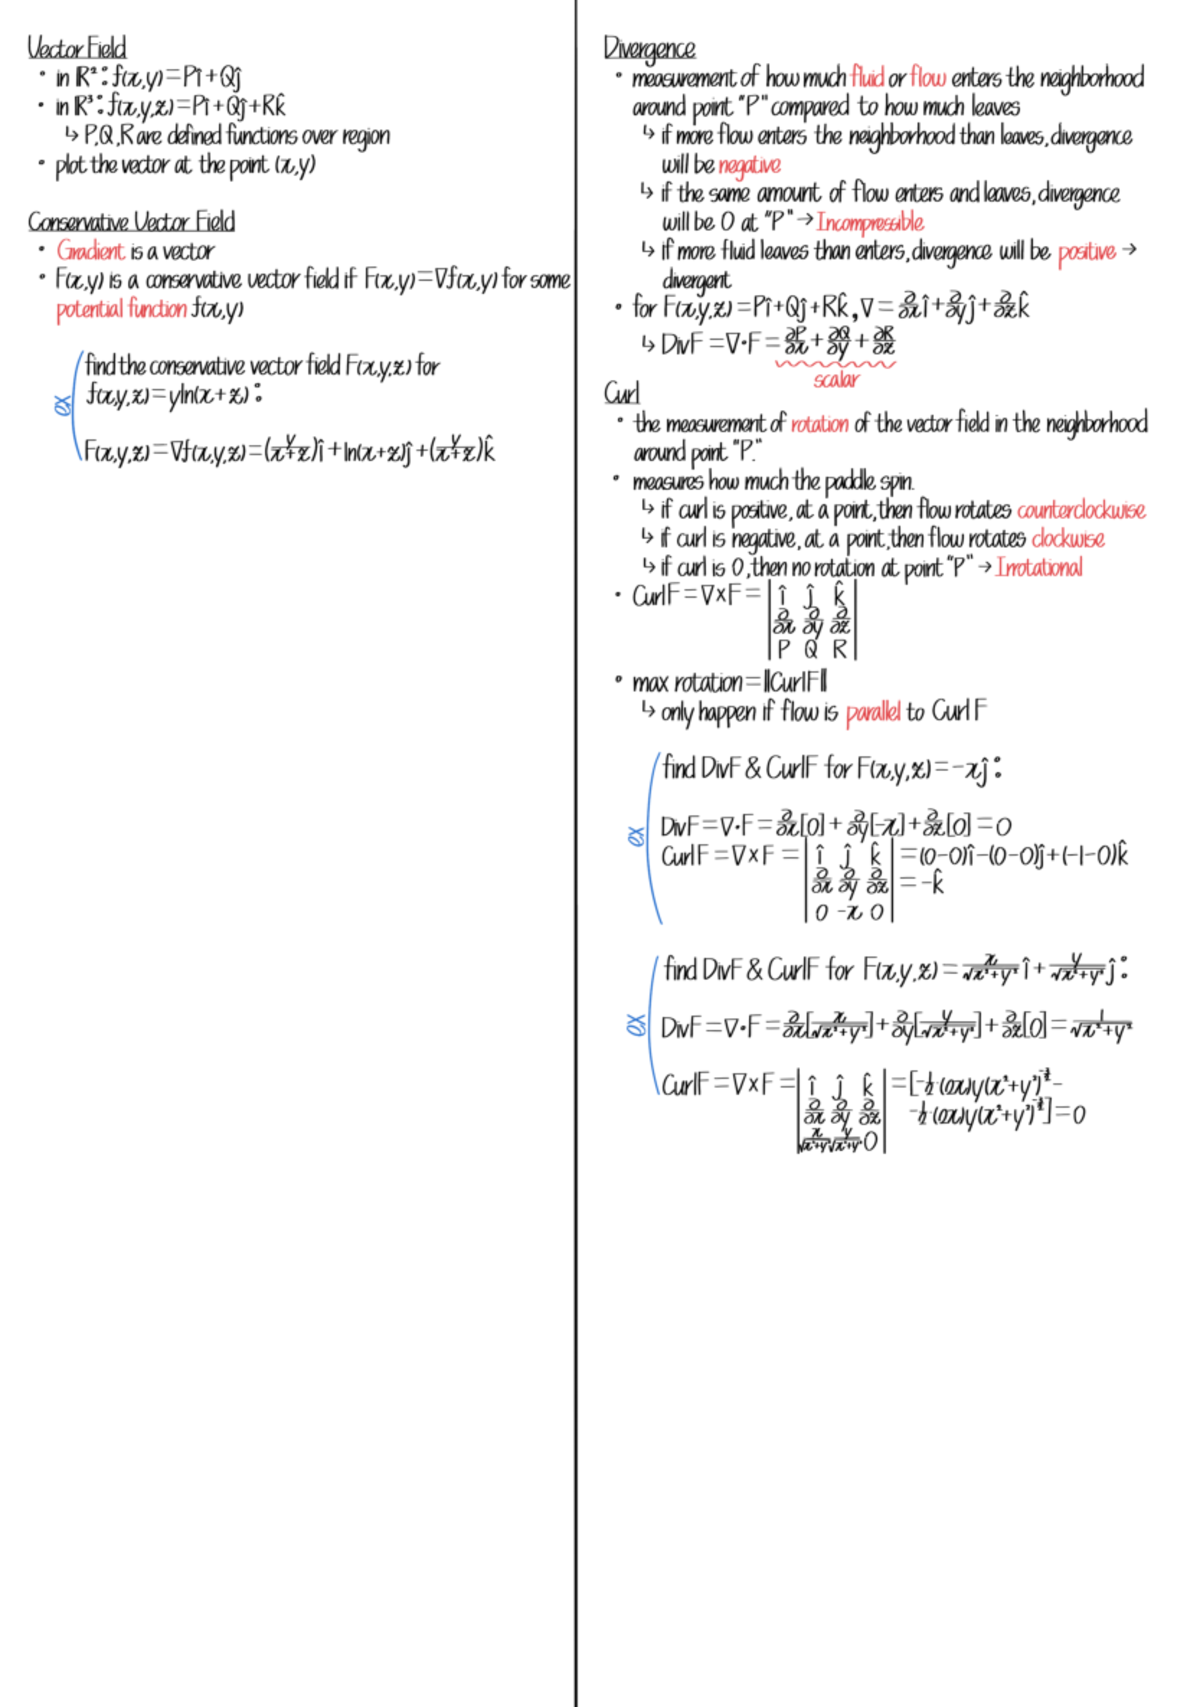 Vector Field
• in ℝ²: f(x,y)=Pî+Qĵ
• in ℝ³: f(x,y,z)=Pî+Qĵ+Rk̂
↳ P,Q,R are defined functions over region
• plot the vector at the point (x,y)
Conservative Vector Field
• Gradient is a vector
• F(x,y) is a conservative vector field if F(x,y)=∇f(x,y) for some
potential function f(x,y)
ex
find the conservative vector field F(x,y,z) for
f(x,y,z)=yln(x+z):
F(x,y,z)=∇f(x,y,z)=(y/(x+z))î+ln(x+z)ĵ+(y/(x+z))k̂
Divergence
• measurement of how much fluid or flow enters the neighborhood
around point "P" compared to how much leaves
↳ if more flow enters the neighborhood than leaves, divergence
will be negative
↳ if the same amount of flow enters and leaves, divergence
will be 0 at "P" → Incompressible
↳ if more fluid leaves than enters, divergence will be positive →
divergent
• for F(x,y,z)=Pî+Qĵ+Rk̂, ∇=∂/∂x î+∂/∂y ĵ+∂/∂z k̂
↳ DivF=∇·F=∂P/∂x+∂Q/∂y+∂R/∂z
scalar
Curl
• the measurement of rotation of the vector field in the neighborhood
around point "P."
• measures how much the paddle spin.
↳ if curl is positive, at a point, then flow rotates counterclockwise
↳ if curl is negative, at a point, then flow rotates clockwise
↳ if curl is 0, then no rotation at point "P" → Irrotational
• CurlF=∇×F= | î ĵ k̂ |
| ∂/∂x ∂/∂y ∂/∂z |
| P Q R |
• max rotation=‖CurlF‖
↳ only happen if flow is parallel to Curl F
ex
find DivF & CurlF for F(x,y,z)=-xĵ:
DivF=∇·F=∂/∂x[0]+∂/∂y[-x]+∂/∂z[0]=0
CurlF=∇×F= | î ĵ k̂ | =(0-0)î-(0-0)ĵ+(-1-0)k̂
| ∂/∂x ∂/∂y ∂/∂z | =-k̂
| 0 -x 0 |
ex
find DivF & CurlF for F(x,y,z)=x/√(x²+y²) î+y/√(x²+y²) ĵ:
DivF=∇·F=∂/∂x[x/√(x²+y²)]+∂/∂y[y/√(x²+y²)]+∂/∂z[0]=1/√(x²+y²)
CurlF=∇×F= | î ĵ k̂ | =[-½·(2x)y(x²+y²)^-3/2-
| ∂/∂x ∂/∂y ∂/∂z | -½·(2x)y(x²+y²)^-3/2]=0
| x/√(x²+y²) y/√(x²+y²) 0 |